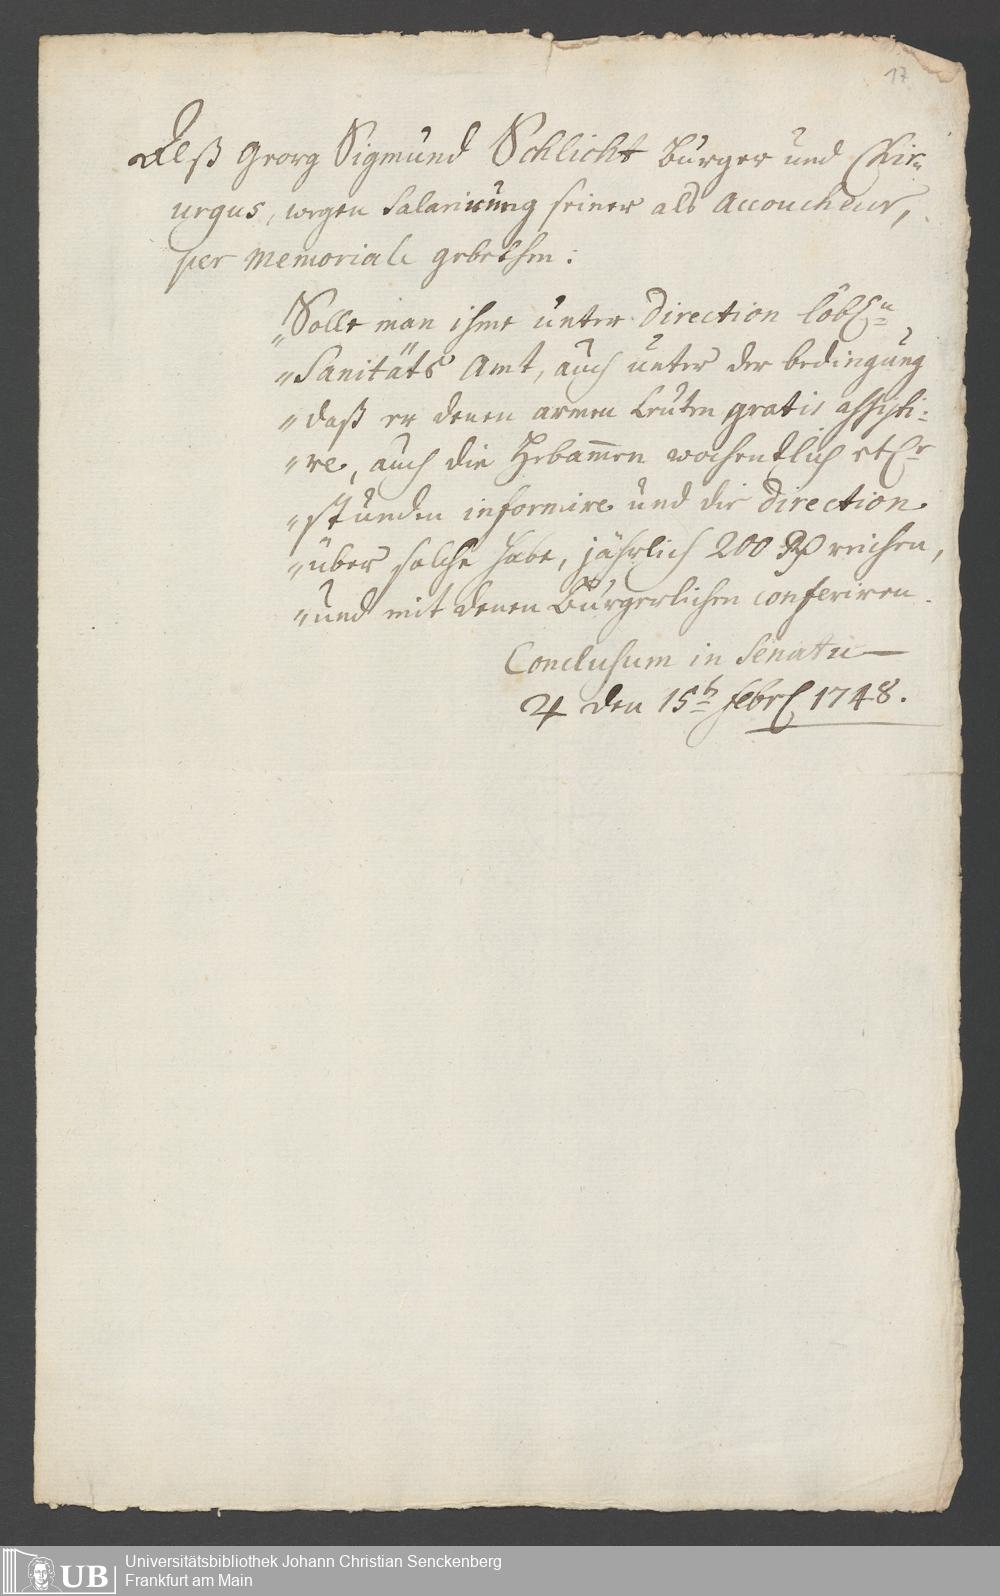 17
Alß Georg Sigmund Schlicht Burger und Chir-
urgus, wegen Salarirung seiner als Accoucheur,
per Memoriale gebethen:
„Solle man ihme unter Direction löbl:n
„Sanitäts Amt, auch unter der bedingung
„daß er denen armen Leuten gratis assisti:
„re, auch die Hebam̄en wochentlich etl:e
„stunden informire und die Direction
„über solche habe, jährlich 200 Rℓ reichen,
„und mit denen Bürgerlichen conferiren.
Conclusum in Senatu
♃ den 15t Febr: 1748.
Universitätsbibliothek Johann Christian Senckenberg
Frankfurt am Main
UB